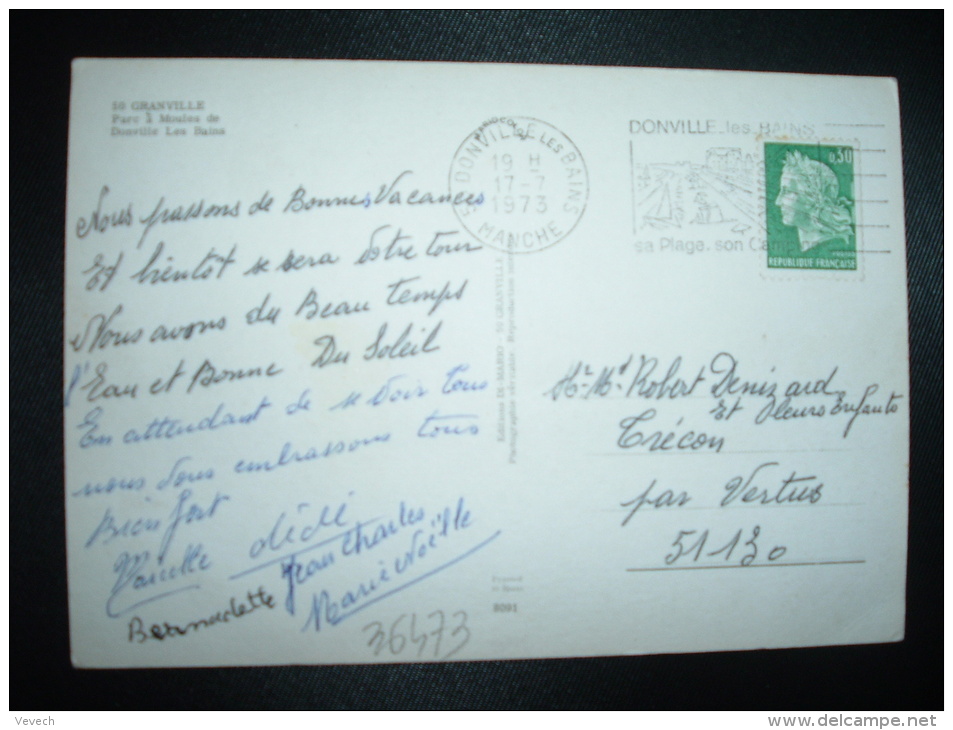 50 GRANVILLE
Parc à Moules de
Donville Les Bains
Nous passons de Bonnes Vacances
Et bientôt se sera vôtre tour
Nous avons du Beau temps
l'Eau et Bonne Du Soleil
En attendant de se voir tous
nous vous embrassons tous
Bien fort
dédé
Jean Charles
Marie Noëlle
Bernadette
36473
50 DONVILLE LES BAINS
19 H
17-7
1973
MANCHE
DONVILLE-les-BAINS
sa Plage, son Camping
0,30
REPUBLIQUE FRANÇAISE
Editions DI-MARIO - 50 GRANVILLE
Photographie véritable - Reproduction interdite
8091
Mr Md Robert Denizard
Et Leurs Enfants
Trécon
par Vertus
51130
Vevech
www.delcampe.net